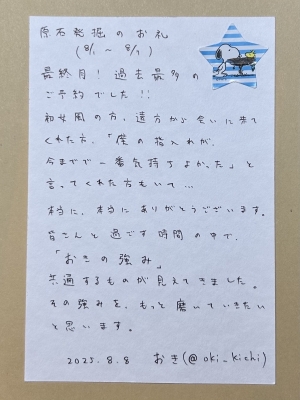 原石発掘のお礼
(8/1 ~ 8/7)
最終月！過去最多の
ご予約でした!!
初せ風の方、遠方から会いに来て
くれた方、「僕の指入れが、
今までで一番気持ちよかった」と
言ってくれた方もいて…
本当に、本当にありがとうございます。
皆さんと過ごす時間の中で、
「おきの強み」
共通するものが見えてきました。
その強みを、もっと磨いていきたい
と思います。
2025.8.8 おき(@oki_kichi)